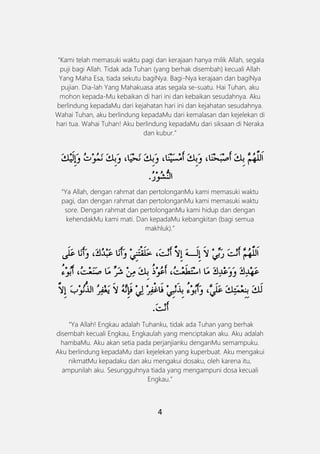 "Kami telah memasuki waktu pagi dan kerajaan hanya milik Allah, segala
puji bagi Allah. Tidak ada Tuhan (yang berhak disembah) kecuali Allah
Yang Maha Esa, tiada sekutu bagiNya. Bagi-Nya kerajaan dan bagiNya
pujian. Dia-lah Yang Mahakuasa atas segala se-suatu. Hai Tuhan, aku
mohon kepada-Mu kebaikan di hari ini dan kebaikan sesudahnya. Aku
berlindung kepadaMu dari kejahatan hari ini dan kejahatan sesudahnya.
Wahai Tuhan, aku berlindung kepadaMu dari kemalasan dan kejelekan di
hari tua. Wahai Tuhan! Aku berlindung kepadaMu dari siksaan di Neraka
dan kubur."
اَللَّهُمَّ بِكَ أَصْبَحْنَا، وَبِكَ أَمْسَيْنَا، وَبِكَ نَحْيَا، وَبِكَ نَمُوْتُ وَإِلَيْكَ
النُّشُوْرُ.
"Ya Allah, dengan rahmat dan pertolonganMu kami memasuki waktu
pagi, dan dengan rahmat dan pertolonganMu kami memasuki waktu
sore. Dengan rahmat dan pertolonganMu kami hidup dan dengan
kehendakMu kami mati. Dan kepadaMu kebangkitan (bagi semua
makhluk)."
اَللَّهُمَّ أَنْتَ رَبِّيْ لاَ إِلَـهَ إِلاَّ أَنْتَ، خَلَقْتَنِيْ وَأَنَا عَبْدُكَ، وَأَنَا عَلَى
عَهْدِكَ وَوَعْدِكَ مَا اسْتَطَعْتُ، أَعُوْذُ بِكَ مِنْ شَرِّ مَا صَنَعْتُ، أَبُوْءُ
لَكَ بِنِعْمَتِكَ عَلَيَّ، وَأَبُوْءُ بِذَنْبِيْ فَاغْفِرْ لِيْ فَإِنَّهُ لاَ يَغْفِرُ الذُّنُوْبَ إِلاَّ
أَنْتَ.
"Ya Allah! Engkau adalah Tuhanku, tidak ada Tuhan yang berhak
disembah kecuali Engkau, Engkaulah yang menciptakan aku. Aku adalah
hambaMu. Aku akan setia pada perjanjianku denganMu semampuku.
Aku berlindung kepadaMu dari kejelekan yang kuperbuat. Aku mengakui
nikmatMu kepadaku dan aku mengakui dosaku, oleh karena itu,
ampunilah aku. Sesungguhnya tiada yang mengampuni dosa kecuali
Engkau."
4